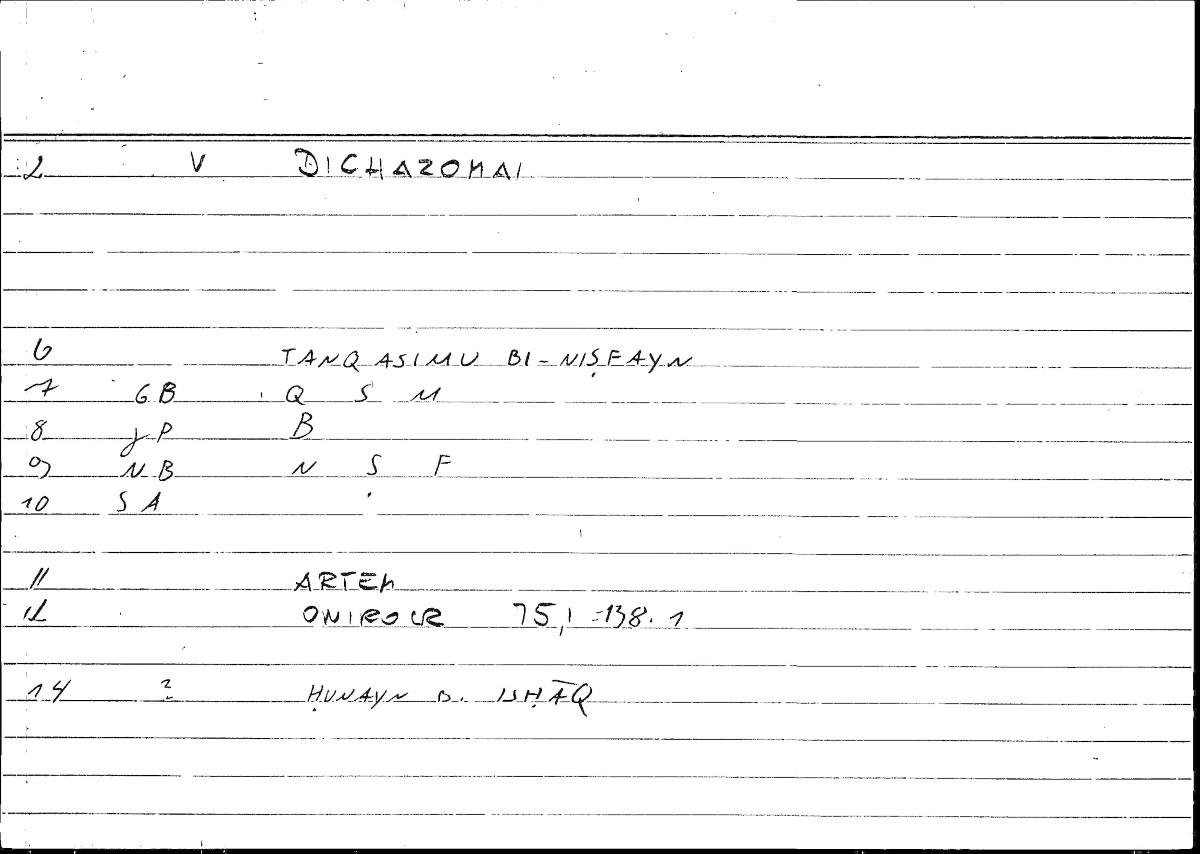 2 V DICHAZOMAI
6 TANQASIMU BI-NIṢFAYN
7 GB Q S M
8 gP B
9 NB N Ṣ F
10 SA
11 ARTEM
12 ONIROCR 75,1 = 138.1
14 ? ḤUNAYN B. ISḤĀQ